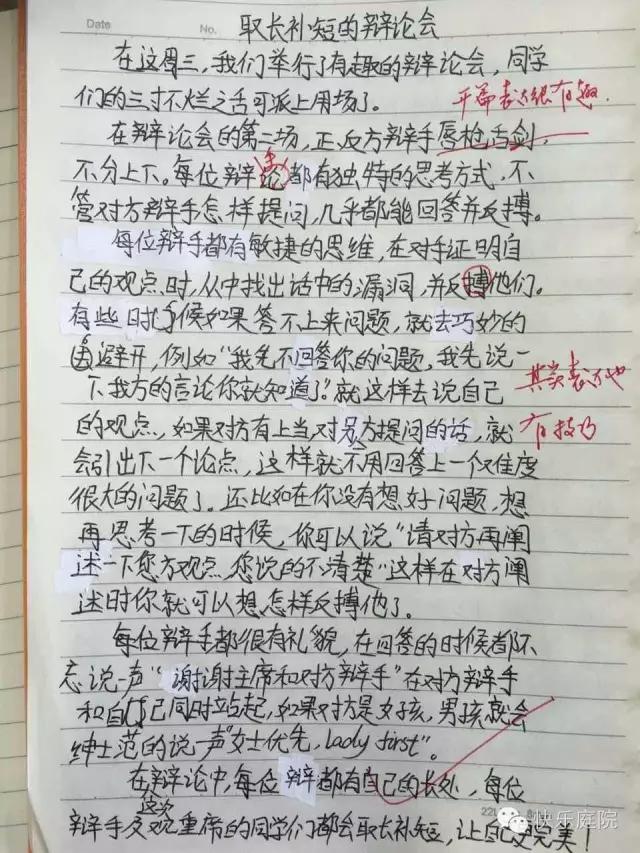 Date No.
取长补短的辩论会
在这周三，我们举行了有趣的辩论会，同学
们的三寸不烂之舌可派上用场了。
开篇表达很有趣.
在辩论会的第二场，正、反方辩手唇枪舌剑，
不分上下。每位辩论手都有独特的思考方式，不
管对方辩手怎样提问，几乎都能回答并反搏。
每位辩手都有敏捷的思维，在对手证明自
己的观点时，从中找出话中的漏洞，并反搏他们。
有些时候如果答不上来问题，就去巧妙的
避开，例如“我先不回答你的问题，我先说一
下我方的言论你就知道了。”就这样去说自己
其实表达也
的观点，如果对方有上当对另方提问的话，就
有技巧
会引出下一个论点，这样就不用回答上一个难度
很大的问题了。还比如在你没有想好问题，想
再思考一下的时候，你可以说“请对方再阐
述一下您方观点，您说的不清楚”这样在对方阐
述时你就可以想怎样反搏他了。
每位辩手都很有礼貌，在回答的时候都不
忘说一声“谢谢主席和对方辩手”在对方辩手
和自己同时站起，如果对方是女孩，男孩就会
绅士范的说一声“女士优先，lady first”。
在这次辩论中，每位辩手都有自己的长处，每位
辩手及观重席的同学们都会取长补短，让自己更完美！
快乐庭院